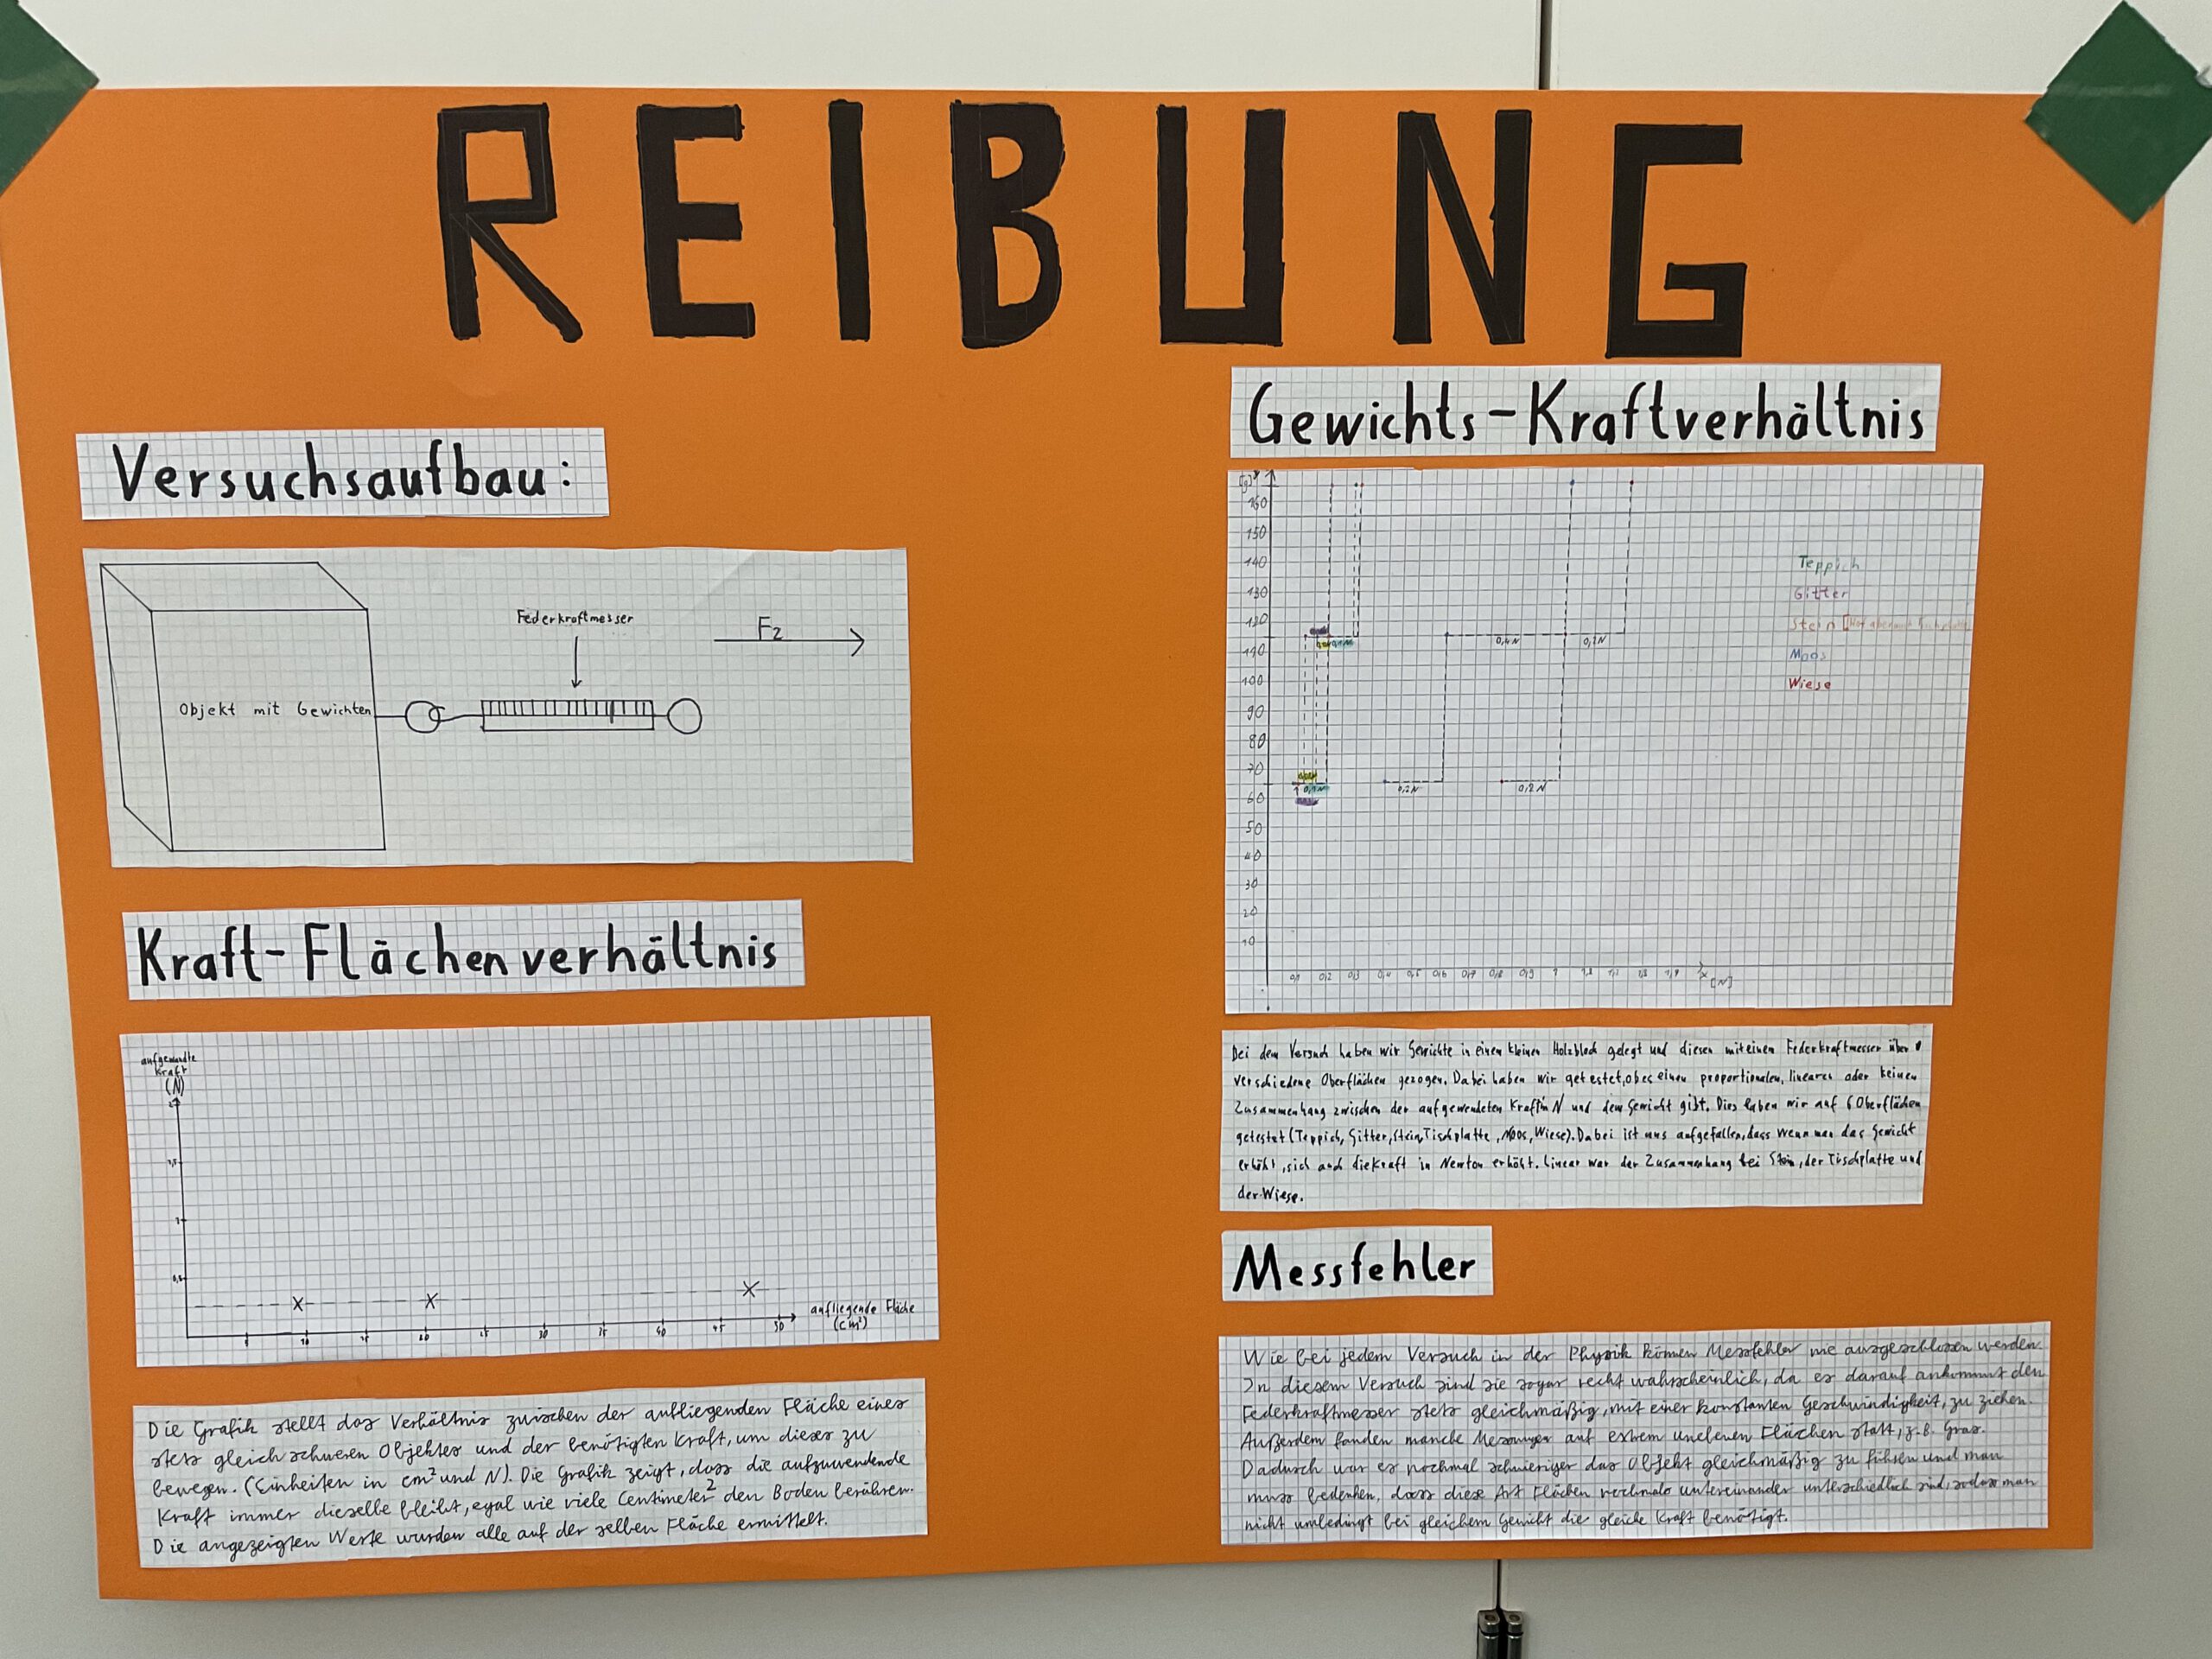 REIBUNG
Versuchsaufbau:
Federkraftmesser
Fz
Objekt mit Gewichten
Kraft-Flächenverhältnis
aufgewandte
Kraft
(N)
2
1,5
1
0,5
5 10 15 20 25 30 35 40 45 50
aufliegende Fläche
(cm²)
Die Grafik stellt das Verhältnis zwischen der aufliegenden Fläche eines
stets gleich schweren Objektes und der benötigten Kraft, um dieses zu
bewegen. (Einheiten in cm² und N). Die Grafik zeigt, dass die aufzuwendende
Kraft immer dieselbe bleibt, egal wie viele Centimeter² den Boden berühren.
Die angezeigten Werte wurden alle auf der selben Fläche ermittelt.
Gewichts-Kraftverhältnis
[g] y
160
150
140
130
120
110
100
90
80
70
60
50
40
30
20
10
0,1 0,2 0,3 0,4 0,5 0,6 0,7 0,8 0,9 1
x
[N]
0,4N 0,2N
0,1N
0,1N
0,2N 0,2N
Teppich
Gitter
Stein
Moos
Wiese
Bei dem Versuch haben wir Gewichte in einen kleinen Holzblock gelegt und diesen mit einen Federkraftmesser über
verschiedene Oberflächen gezogen. Dabei haben wir getestet, ob es einen proportionalen, linearen oder keinen
Zusammenhang zwischen der aufgewendeten Kraft in N und dem Gewicht gibt. Dies haben wir auf 6 Oberflächen
getestet (Teppich, Gitter, Stein, Tischplatte, Moos, Wiese). Dabei ist uns aufgefallen, dass wenn man das Gewicht
erhöht, sich auch die Kraft in Newton erhöht. Linear war der Zusammenhang bei Stein, der Tischplatte und
der Wiese.
Messfehler
Wie bei jedem Versuch in der Physik können Messfehler nie ausgeschlossen werden.
In diesem Versuch sind sie sogar recht wahrscheinlich, da es darauf ankommt den
Federkraftmesser stets gleichmäßig, mit einer konstanten Geschwindigkeit, zu ziehen.
Außerdem fanden manche Messungen auf extrem unebenen Flächen statt, z.B. Gras.
Dadurch war es nochmal schwieriger das Objekt gleichmäßig zu führen und man
muss bedenken, dass diese Art Flächen nochmals untereinander unterschiedlich sind, sodass man
nicht umbedingt bei gleichem Gewicht die gleiche Kraft benötigt.